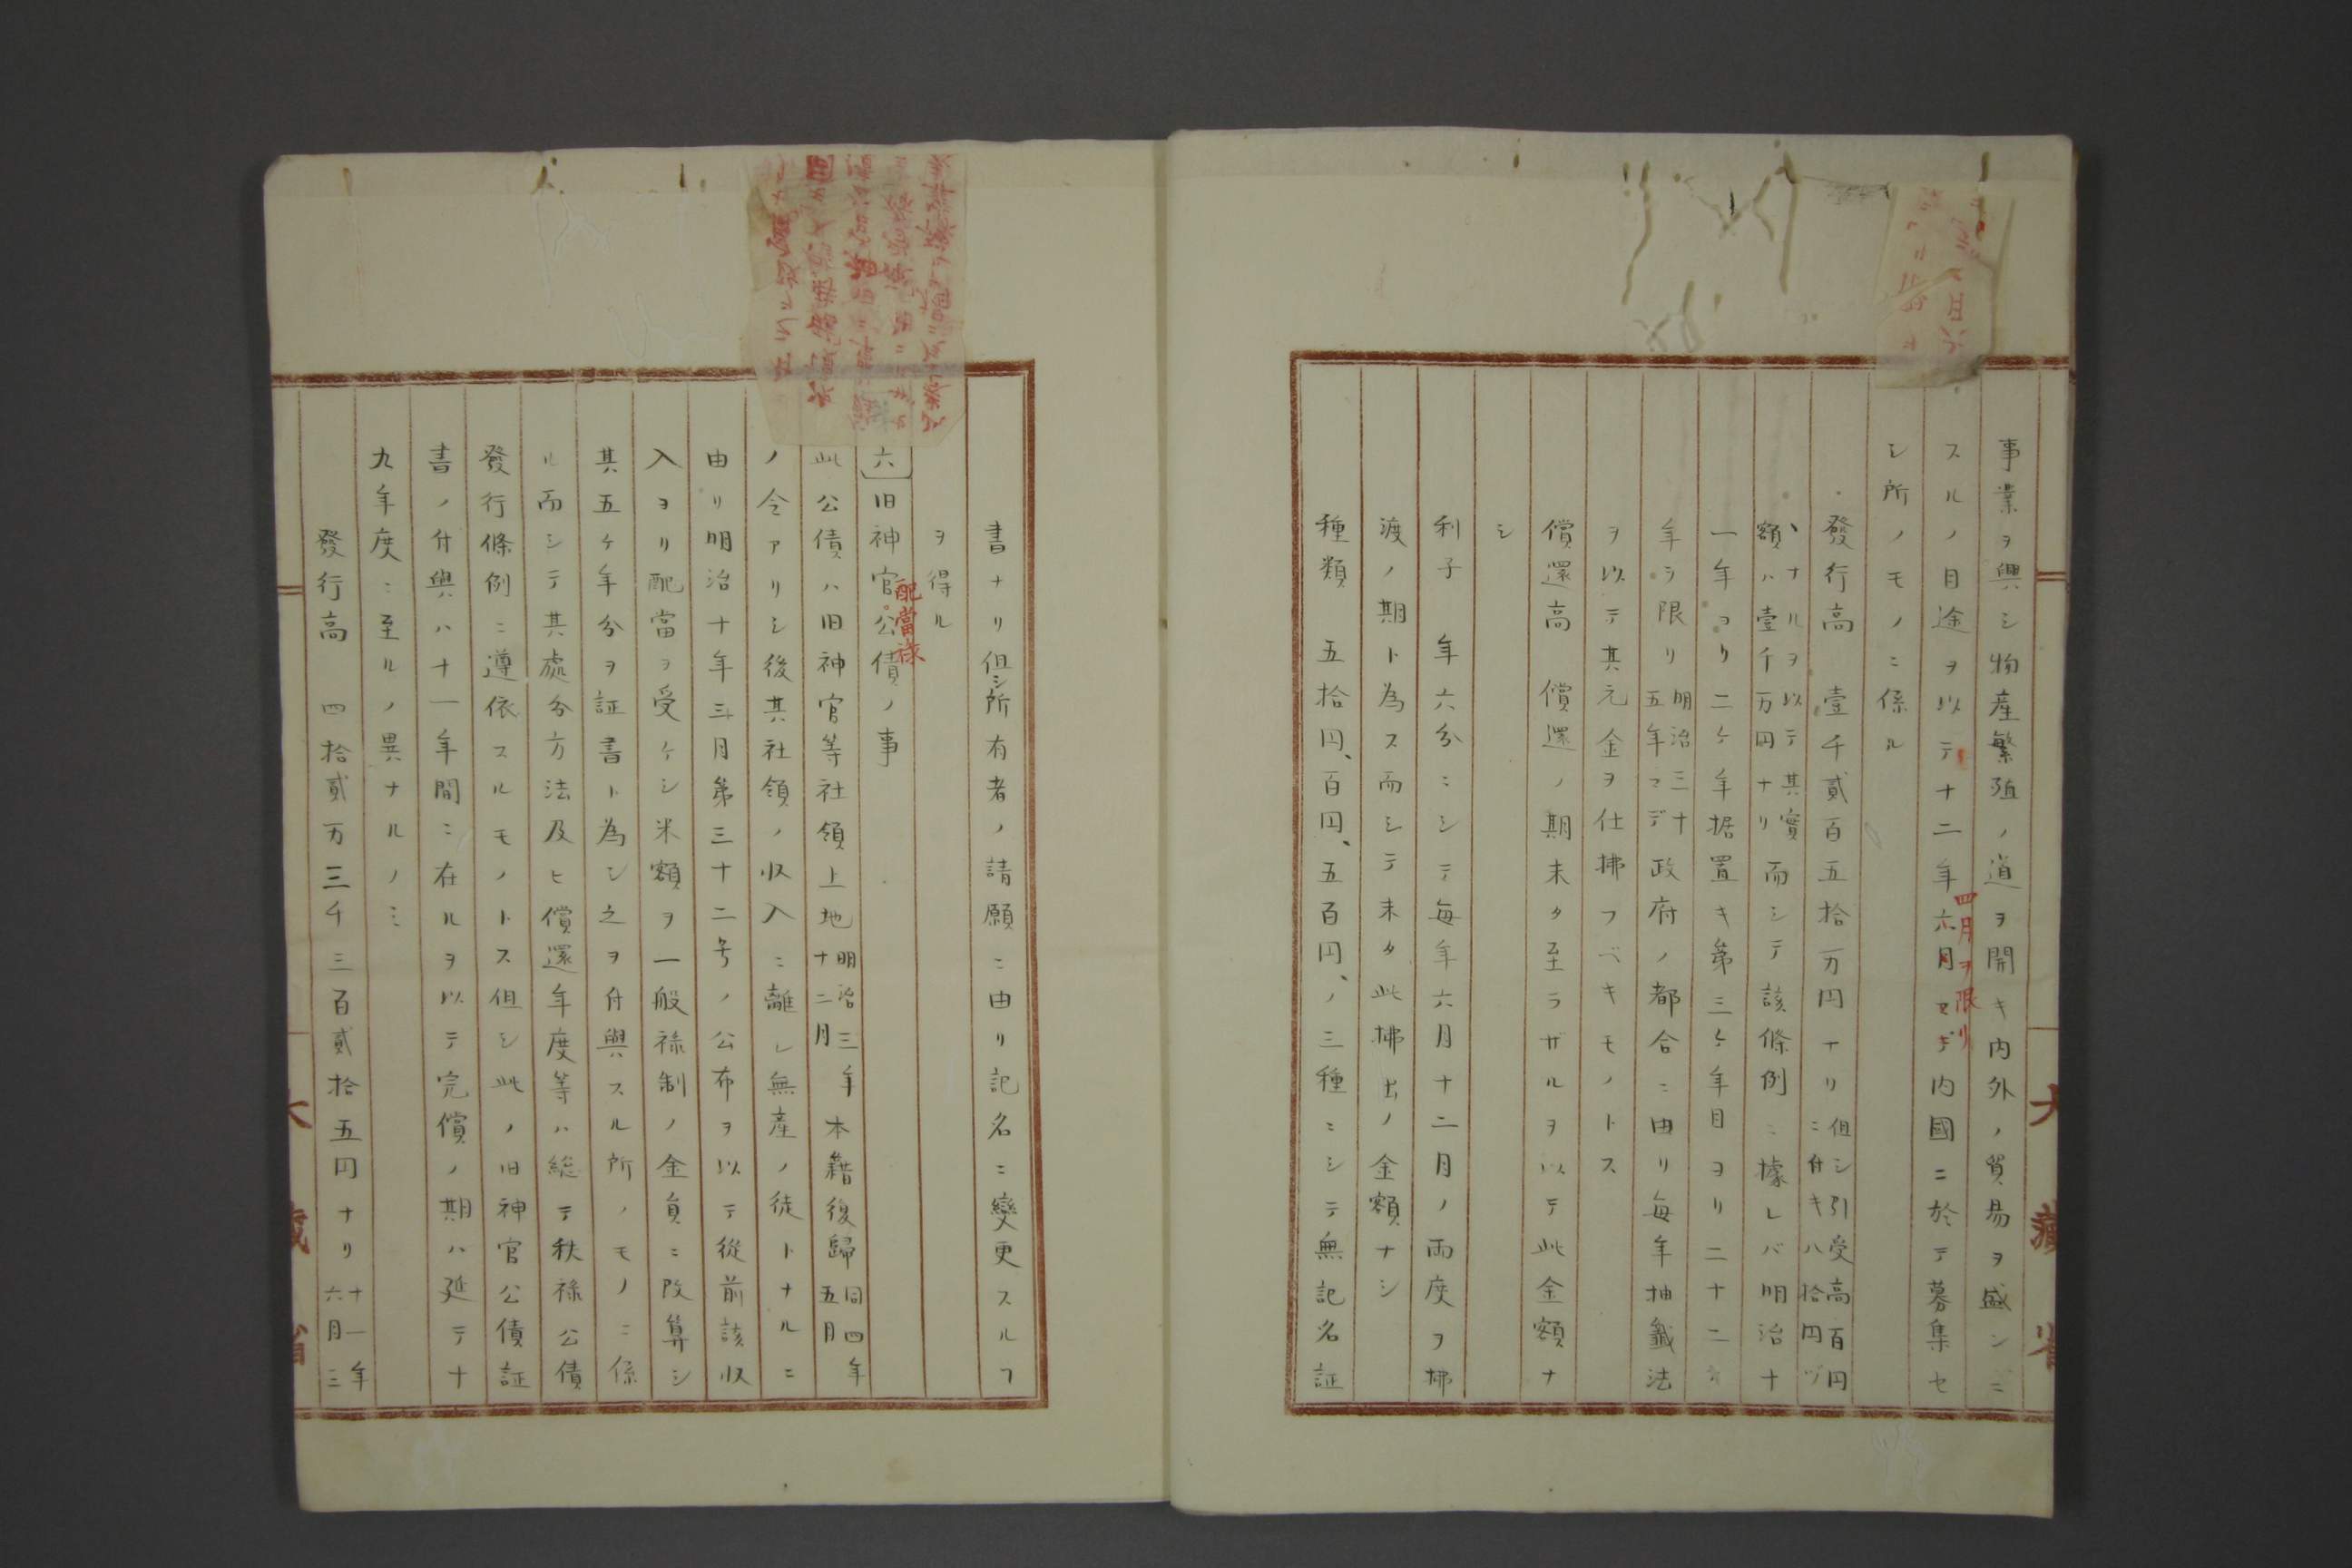 事業ヲ興シ物産繁殖ノ道ヲ開キ内外ノ貿易ヲ盛ンニ
スルノ目途ヲ以テ十二年六月マデ内國ニ於テ募集セ
四月ヲ限リ
シ所ノモノニ係ル
發行高 壹千貳百五拾万円ナリ但シ引受高百円
ニ付キ八拾円ヅ
ヽナルヲ以テ其實
額ハ壹千万円ナリ而シテ該條例ニ據レバ明治十
一年ヨリ二ケ年据置キ第三ケ年目ヨリ二十三
年ヲ限リ明治三十
五年マデ政府ノ都合ニ由リ毎年抽籤法
ヲ以テ其元金ヲ仕拂フベキモノトス
償還高 償還ノ期未タ至ラザルヲ以テ此金額ナ
シ
利子 年六分ニシテ毎年六月十二月ノ兩度ヲ拂
渡ノ期ト為ス而シテ未タ此拂出ノ金額ナシ
種類 五拾円、百円、五百円、ノ三種ニシテ無記名証
大藏省
書ナリ但シ所有者ノ請願ニ由リ記名ニ變更スルヿ
ヲ得ル
六 旧神官公債ノ事
配當禄
此公債ハ旧神官等社領上地明治三年
十二月本籍復歸同四年
五月
ノ令アリシ後其社領ノ収入ニ離レ無産ノ徒トナルニ
由リ明治十年三月第三十二号ノ公布ヲ以テ從前該収
入ヨリ配當ヲ受ケシ米額ヲ一般禄制ノ金員ニ改算シ
其五ケ年分ヲ証書ト為シ之ヲ付與スル所ノモノニ係
ル而シテ其處分方法及ヒ償還年度等ハ総テ秩禄公債
發行條例ニ遵依スルモノトス但シ此ノ旧神官公債証
書ノ付與ハ十一年間ニ在ルヲ以テ完償ノ期ハ延テ十
九年度ニ至ルノ異ナルノミ
發行高 四拾貳万三千三百貳拾五円ナリ十一年
六月三
大藏省